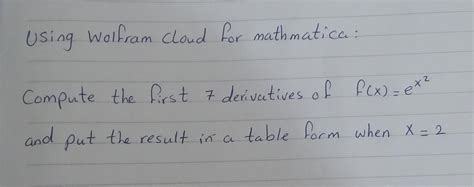 Using Wolfram Cloud for mathmatica:
Compute the first 7 derivatives of f(x)=e^x^2
and put the result in a table form when x=2